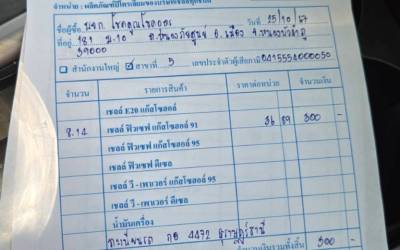 จำหน่าย : ผลิตภัณฑ์ปิโตรเลียม
ชื่อผู้ซื้อ บจก. โชคคูณโชคถาวร วันที่ 25/10/67
ที่อยู่ 181 ม.10 ต.หนองบัว อ.เมือง จ.หนองบัวลำภู
39000
สำนักงานใหญ่ ☑ สาขาที่ 5 เลขประจำตัวผู้เสียภาษี 0415554000050
จำนวน รายการสินค้า ราคาต่อหน่วย จำนวนเงิน
เชลล์ E20 แก๊สโซฮอล์
8.14 เชลล์ ฟิวเซฟ แก๊สโซฮอล์ 91 36 89 300 -
เชลล์ ฟิวเซฟ แก๊สโซฮอล์ 95
เชลล์ ฟิวเซฟ ดีเซล
เชลล์ วี - เพาเวอร์ แก๊สโซฮอล์ 95
เชลล์ วี - เพาเวอร์ ดีเซล
น้ำมันเครื่อง
ทะเบียนรถ กอ 4472 อุดรธานี
จำนวนเงินรวมทั้งสิ้น 300 -